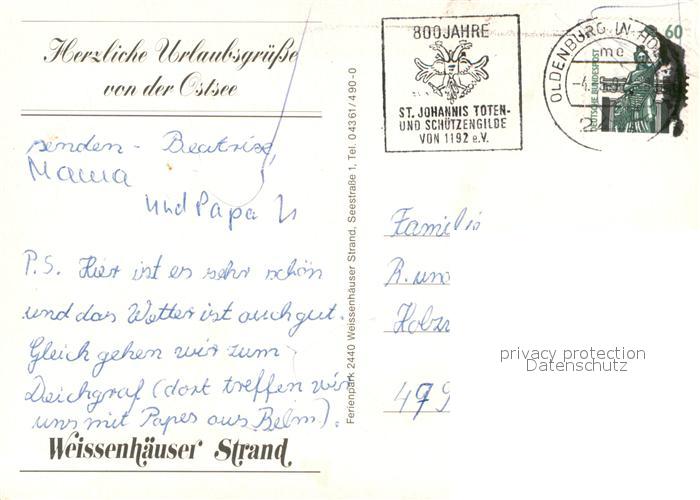 Herzliche Urlaubsgrüße
von der Ostsee
senden - Beatrixe,
Mama
und Papa
P.S. Hier ist es sehr schön
und das Wetter ist auch gut.
Gleich gehen wir zum
Deichgraf (dort treffen wir
uns mit Papes aus Belm).
Weissenhäuser Strand
Ferienpark 2440 Weissenhäuser Strand, Seestraße 1, Tel. 04361/490-0
800 JAHRE
ST. JOHANNIS TOTEN-
UND SCHÜTZENGILDE
VON 1192 e.V.
OLDENBURG IN HO
me
60
DEUTSCHE BUNDESPOST
Familie
R. un
Holz
479
privacy protection
Datenschutz